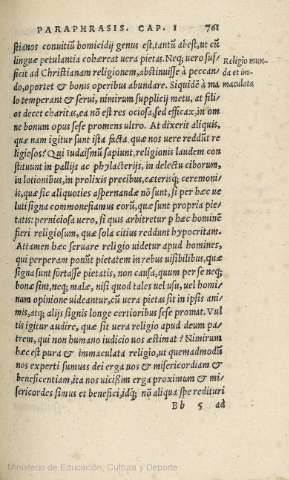 PARAPHRASIS. CAP. I 761
stianos conuitiũ homicidij genus est, tantũ abest, ut cũ
linguæ petulantia cohæreat uera pietas. Neq; uero suf-
ficit ad Christianam religionem, abstinuisse à peccan-
do, oportet & bonis operibus abundare. Siquidẽ à ma
lo temperant & serui, nimirum supplicij metu, at fili-
os decet charitas, ea nõ est res ociosa, sed efficax, in om
ne bonum opus sese promens ultro. At dixerit aliquis,
quæ nam igitur sunt ista facta quæ nos uere reddũt re
ligiosos? Qui Iudaismũ sapiunt, religionis laudem con
stituunt in pallijs ac phylacterijs, in delectu ciborum,
in lotionibus, in prolixis precibus, cæterisq; ceremonijs,
quæ sic aliquoties aspernandæ nõ sunt, si per hæc ue
lut signa commonefiamus eorũ, quæ sunt propria pie-
tatis: perniciosa uero, si quis arbitretur p hæc hominẽ
fieri religiosum, quæ sola citius reddunt hypocritam.
Attamen hæc seruare religio uidetur apud homines,
qui perperam ponũt pietatem in rebus uisibilibus, quæ
signa sunt fortasse pietatis, non causa, quum per se neq;
bonæ sint, neq; malæ, nisi quod tales uel usu, uel homi
nam opinione uideantur, cũ uera pietas sit in ipsis ani-
mis, atq; alijs signis longe certioribus sese promat. Vul
tis igitur audire, quæ sit uera religio apud deum pa-
trem, qui non humano iudicio uos æstimat? Nimirum
hæc est pura & immaculata religio, ut quemadmodũ
nos experti sumus dei erga nos & misericordiam &
beneficentiam, ita nos uicissim erga proximum & mi-
sericordes simus et benefici, idq; nõ aliqua spe redituri
Bb 5 ad
Religio mun-
da et im-
maculata
Ministerio de Educación, Cultura y Deporte